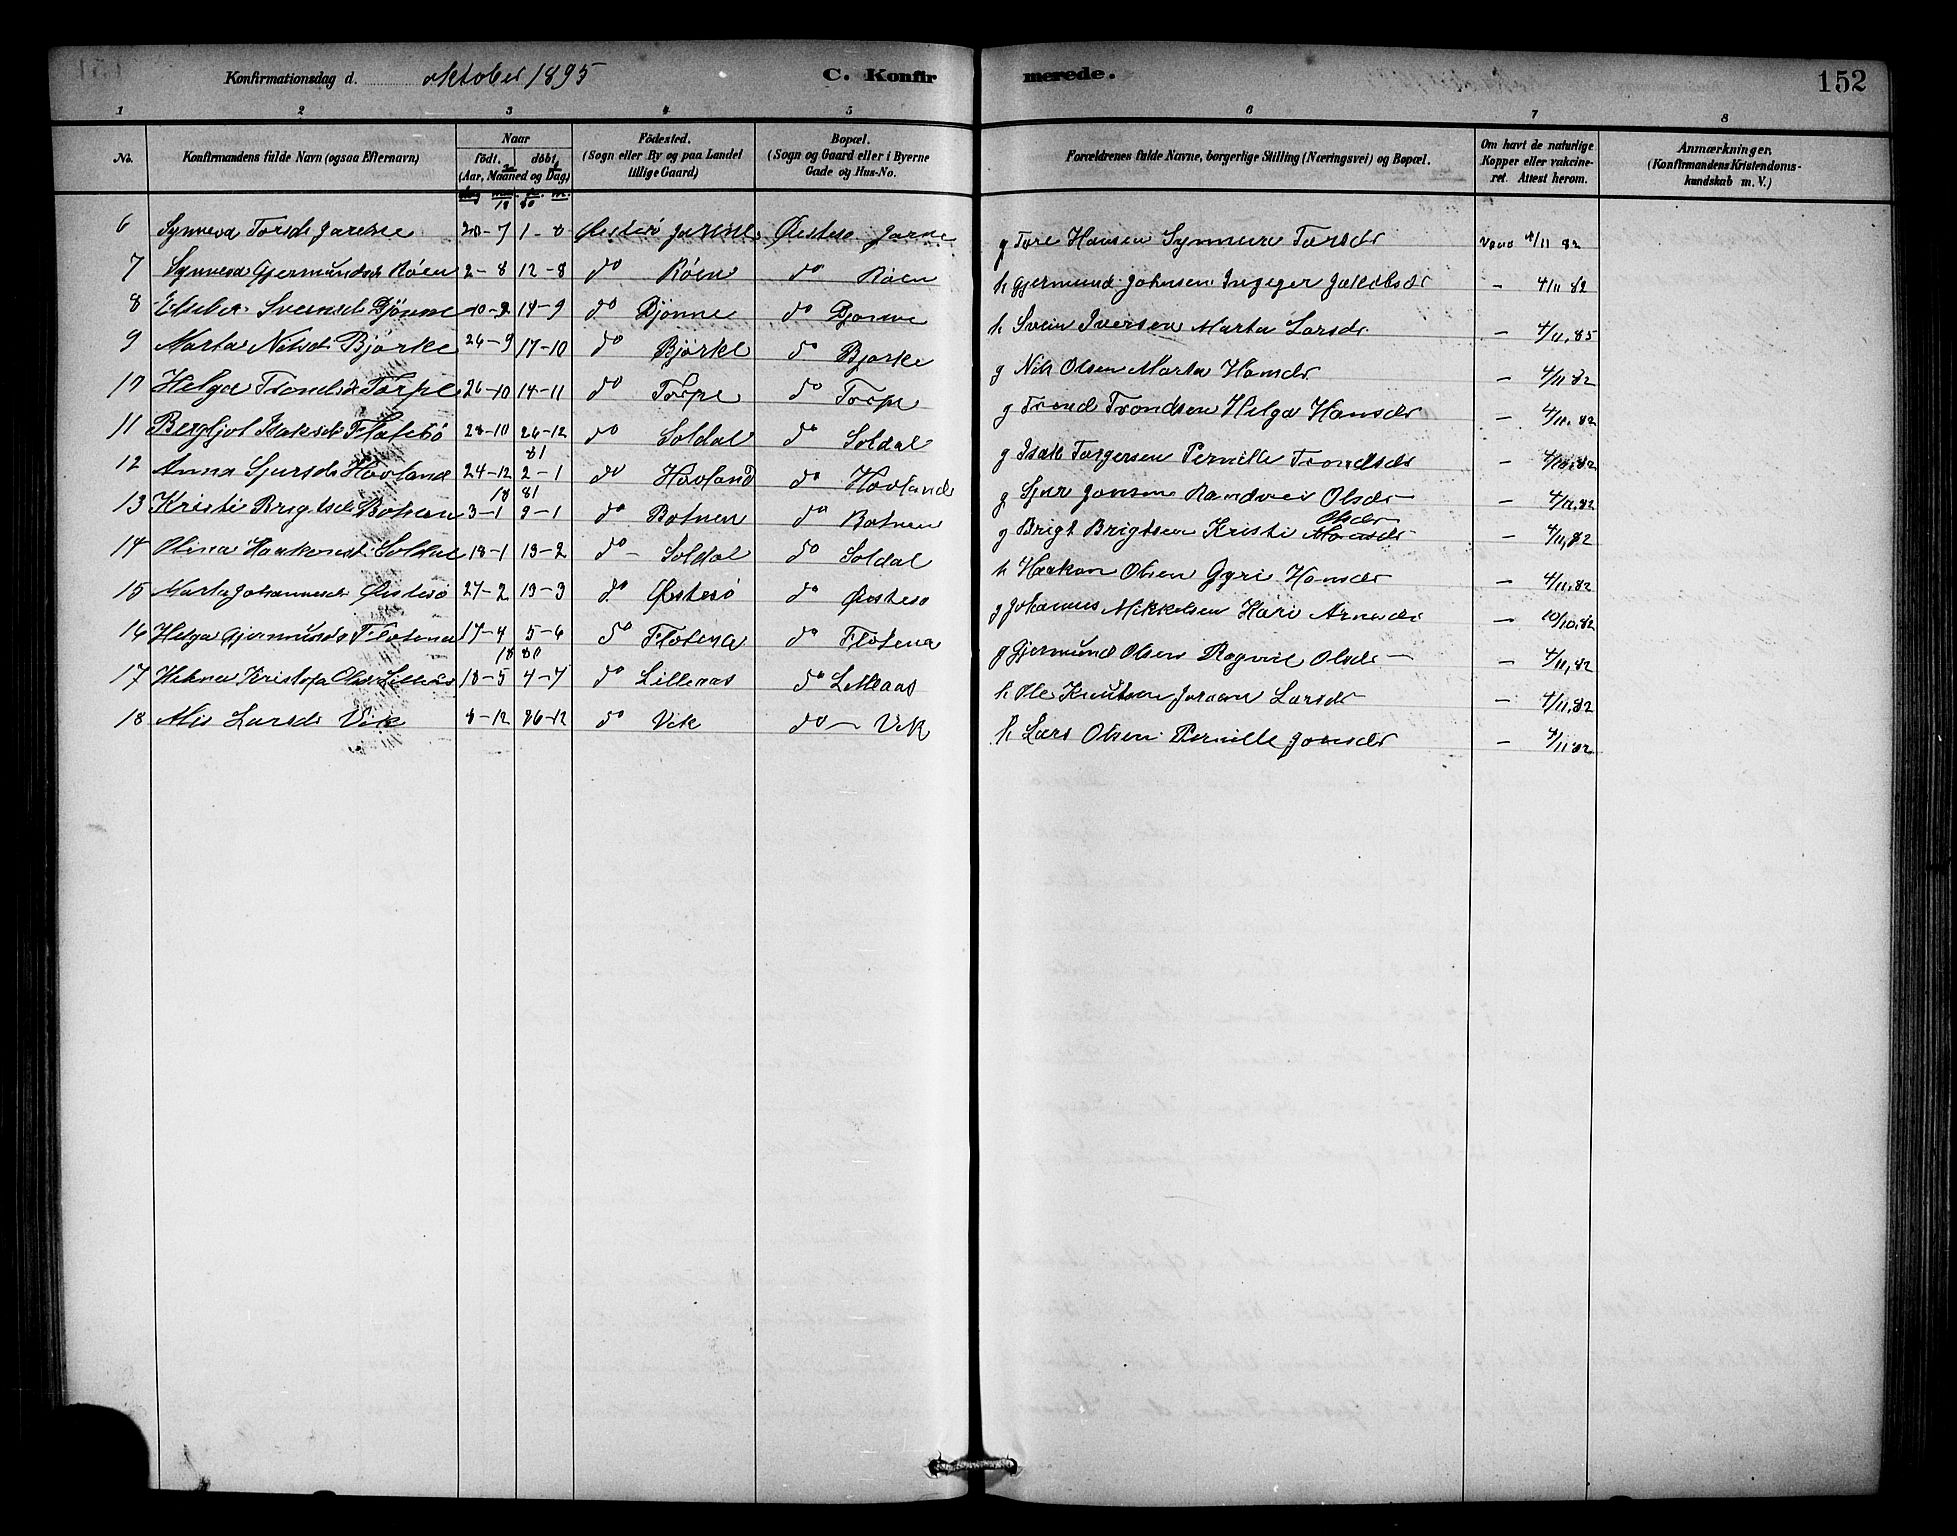 Konfirmationsdag d. oktober 1895 C. Konfirmerede. 152
1 2 3 4 5 6 7 8
No. Konfirmandens fulde Navn (ogsaa Efternavn) Naar født. døbt. (Aar, Maaned og Dag) Födested. (Sogn eller By og paa Landet tillige Gaard) Bopæl. (Sogn og Gaard eller i Byerne Gade og Hus-No. Forældrenes fulde Navne, borgerlige Stilling (Næringsvei) og Bopæl. Om havt de naturlige Kopper eller vakcineret. Attest herom. Anmærkninger, (Konfirmandens Kristendomskundskab m. V.)
6 Synneva Torsdr 20-7 1-8 g Tore Hansen Torsdr 4/11 82
7 Synneva Gjermundsdr Röen 2-8 12-8 do Röen do Röen h Gjermund Johnsen Ingeger Jakobsdr - 4/11 82
8 Sveinsdr Djönne 14-9 do Djönne do Djønne h Svein Iversen Marta Larsdr - 4/11 85
9 Marta Nilsdr Björke 26-9 17-10 do Björke do Bjørke g Nils Olsen Marta Hansdr - 4/11 82
10 Helga Trondsdr Torpe 26-10 14-11 do Torpe do Torpe g Trond Trondsen Helga Hansdr - 4/11 82
11 Bergljot Isaksdr Flatebö 28-10 26-12 do Soldal do Soldal g Isak Torgersen Pernille Trondsdr - 82
81
12 Anna Sjursdr Hovland 24-12 2-1 do Hovland do Hovland g Sjur Jonsen Randvei Olsdr - 4/11 82
18 81
13 Kristi Brigtsdr Botnen 3-1 9-1 do Botnen do Botnen g Brigt Brigtsen Kristi Olsdr - 4/11 82
14 Olina Haakonsdr Soldal 18-1 13-2 do - Soldal do Soldal h Haakon Olsen Gyri Hansdr - 4/11 82
15 Marta Johannesdr Östesö 27-2 13-3 do Östesö do Östesö g Johannes Mikkelsen Kari Arnesdr - 10/10 82
16 Helga Gjermundsdr Flotena 17-4 5-6 do Flotena do Flotena g Gjermund Olsen Ragnil Olsdr - 4/11 82
18 80
17 Kristofa Olsdr Lilleaas 18-5 4-7 do Lilleaas do Lilleaas h Ole Knutsen Larsdr - 4/11 82
18 Larsdr Vik 8-12 26-12 do Vik do - Vik h Lars Olsen Pernille Jonsdr - 4/11 82